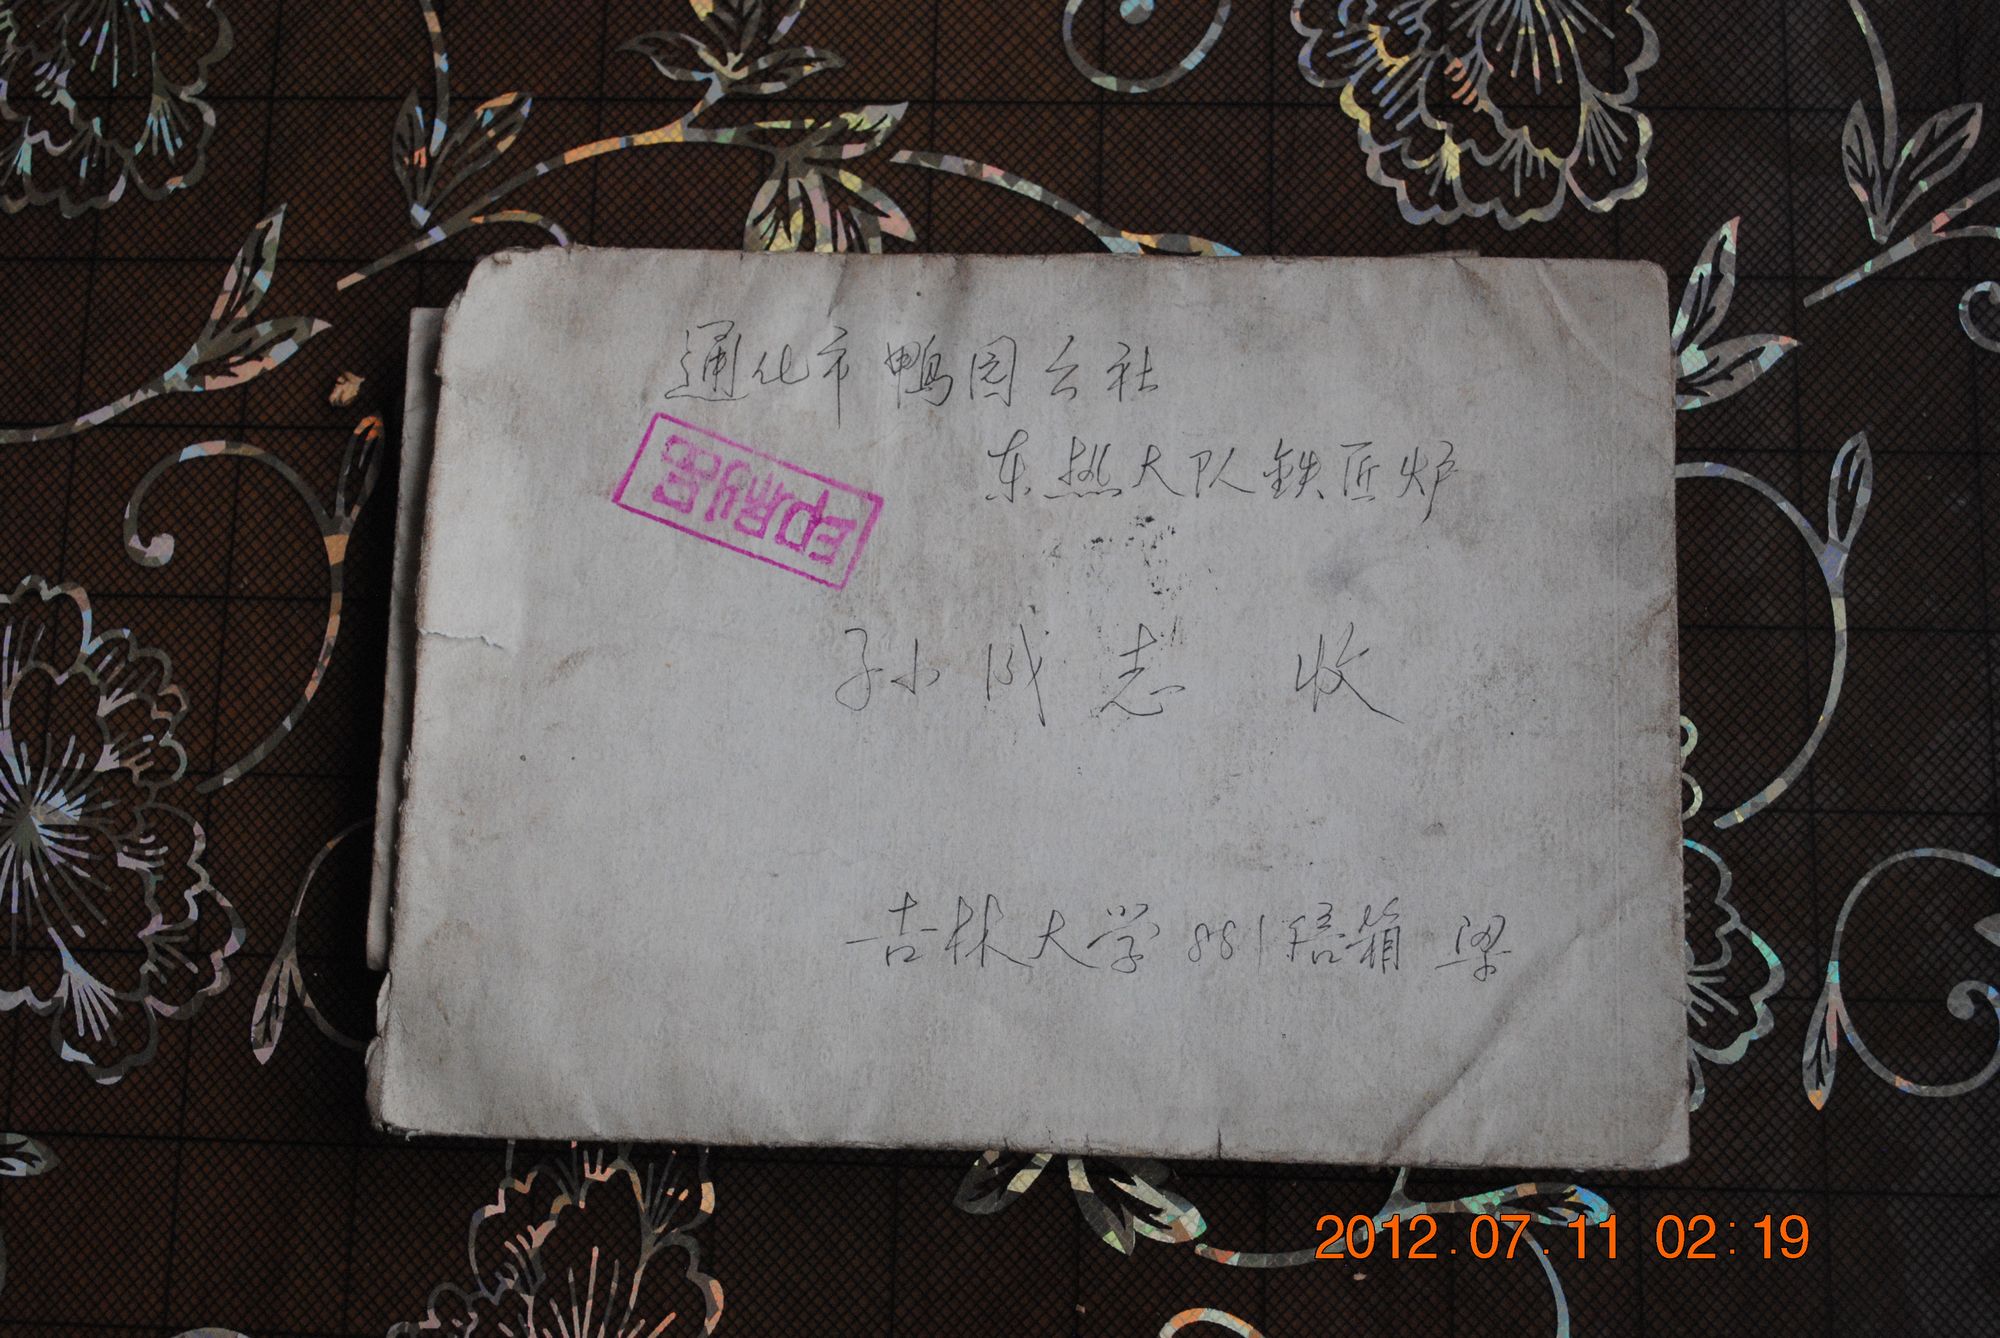 通化市鸭园公社
东热大队铁匠炉
印刷品
孙成志 收
吉林大学 881信箱 梁
2012.07.11 02:19